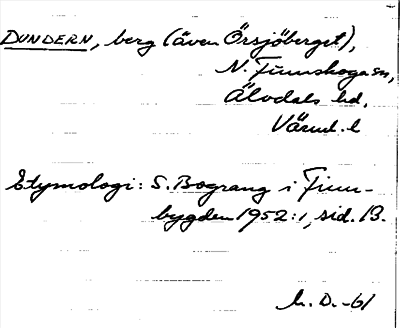 DUNDERN, berg (även Örsjöberget),
N. Finnskoga sn,
Älvdals hd,
Värml. l
Etymologi: S. Bograng i Finn-
bygden 1952:1, sid. 13.
D. -61